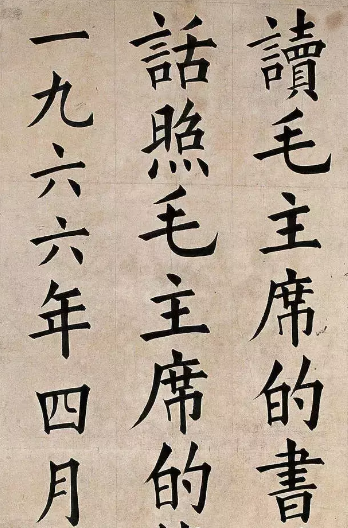 讀毛主席的書
話照毛主席的
一九六六年四月